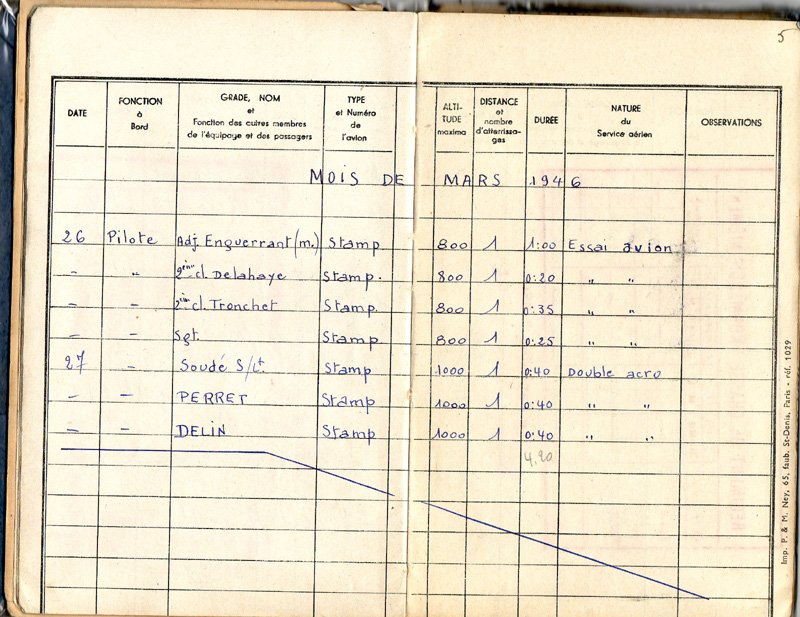 5
DATE FONCTION à Bord GRADE, NOM et Fonction des autres membres de l'équipage et des passagers TYPE et Numéro de l'avion ALTI-TUDE maxima DISTANCE et nombre d'atterrissa-ges DURÉE NATURE du Service aérien OBSERVATIONS
MOIS DE MARS 1946
26 Pilote Adj. Enguerrant (m.) Stamp 800 1 1:00 Essai avion
– " 2ème cl. Delahaye Stamp. 800 1 0:20 " "
– – 2ème cl. Tronchet Stamp. 800 1 0:35 " "
– – Sgt. Stamp. 800 1 0:25 " "
27 – Soudé S/Lt. Stamp 1000 1 0:40 Double acro
– – PERRET Stamp 1000 1 0:40 " "
– – DELIN Stamp 1000 1 0:40 " "
4.20
Imp. P. & M. Ney, 65, faub. St-Denis, Paris - réf. 1029